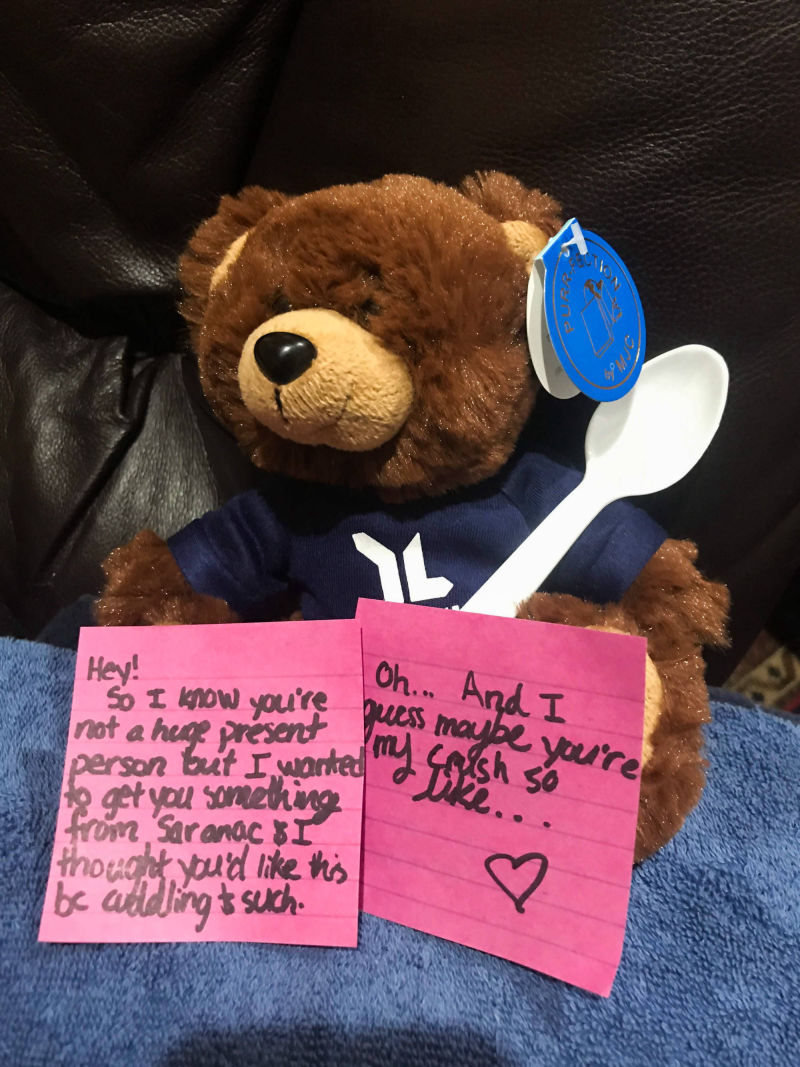 PURR-FECTION
BY MJC
Hey!
So I know you're
not a huge present
person but I wanted
to get you something
from Saranac & I
thought you'd like this
bc cuddling & such.
Oh... And I
guess maybe you're
my crush so
like....